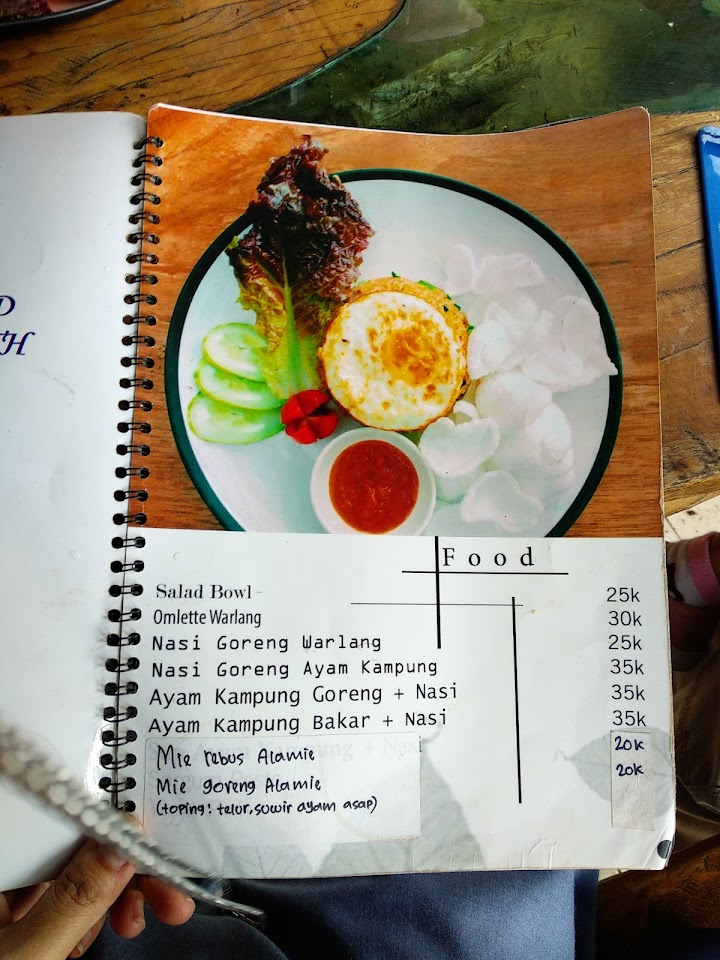 TH
Food
Salad Bowl 25k
Omlette Warlang 30k
Nasi Goreng Warlang 25k
Nasi Goreng Ayam Kampung 35k
Ayam Kampung Goreng + Nasi 35k
Ayam Kampung Bakar + Nasi 35k
Mie rebus Alamie 20k
Mie goreng Alamie 20k
(toping: telur, suwir ayam asap)